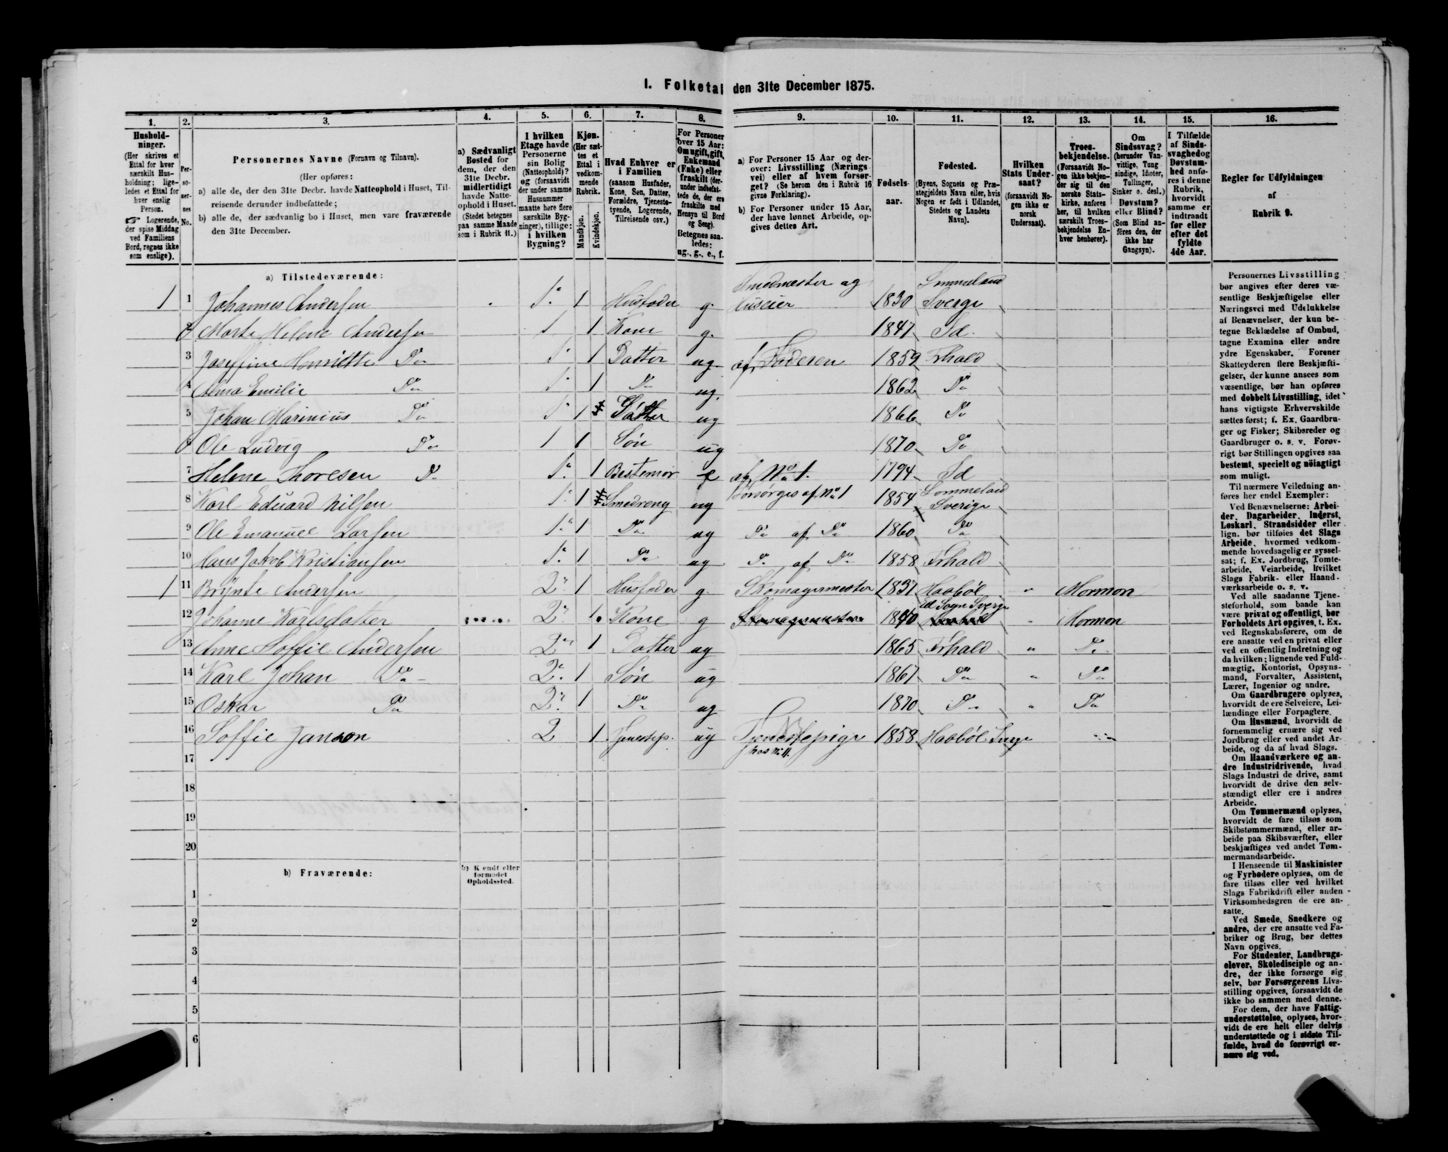 I. Folketal den 31te December 1875.
1. 2. 3. 4. 5. 6. 7. 8. 9. 10. 11. 12. 13. 14. 15. 16.
Hushold-
ninger.
(Her skrives et
Ettal for hver
særskilt Hus-
holdning; lige-
ledes et Ettal for
hver enslig
Person.
☞ Logerende,
der spise Middag
ved Familiens
Bord, regnes ikke
som enslige).
Per-
so-
ner-
nes
No.
Personernes Navne (Fornavn og Tilnavn).
(Her opføres:
a) alle de, der den 31te Decbr. havde Natteophold i Huset, Til-
reisende derunder indbefattede;
b) alle de, der sædvanlig bo i Huset, men vare fraværende
den 31te December.
a) Sædvanligt
Bosted for
dem, der den
31te Decbr.
midlertidigt
havde Natte-
ophold i Huset.
(Stedet betegnes
paa samme Maade
som i Rubrik 11.)
I hvilken
Etage havde
Personerne
sin Bolig
(Natteophold)?
og (forsaavidt
der under samme
Husnummer
maatte høre flere
særskilte Byg-
ninger), tillige:
i hvilken
Bygning?
Kjøn.
(Her sæt-
tes et
Ettal i
vedkom-
mende
Rubrik.
Mandkjøn.
Kvindekjøn.
Hvad Enhver er
i Familien
(saasom Husfader,
Kone, Søn, Datter,
Forældre, Tjeneste-
tyende, Logerende,
Tilreisende osv.)
For Personer
over 15 Aar:
Om ugift, gift,
Enkemand
(Enke) eller
fraskilt (der-
under indbefat-
tede de, der ere
fraskilte med
Hensyn til Bord
og Seng).
Betegnes saa-
ledes:
ug., g., e., f.
a) For Personer 15 Aar og der-
over: Livsstilling (Nærings-
vei) eller af hvem forsør-
get? (Se herom den i Rubrik 16
givne Forklaring).
b) For Personer under 15 Aar,
der have lønnet Arbeide, op-
gives dettes Art.
Fødsels-
aar.
Fødested.
(Byens, Sognets og Præ-
stegjeldets Navn eller, hvis
Nogen er født i Udlandet,
Stedets og Landets
Navn).
Hvilken
Stats Under-
saat?
(forsaavidt No-
gen ikke er
norsk
Undersaat).
Troes-
bekjendelse.
(Forsaavidt No-
gen ikke bekjen-
der sig til den
norske Stats-
kirke, anføres
her, til hvilken
særskilt Troes-
bekjendelse En-
hver henhører).
Om
Sindssvag?
(herunder Van-
vittige, Tung
sindige, Idioter,
Tullinger,
Sinker o. desl.)
Døvstum?
eller Blind?
(Som Blind an-
føres den, der
ikke har
Gangsyn).
I Tilfælde
af Sinds-
svaghed og
Døvstum-
hed anfø-
res i denne
Rubrik,
hvorvidt
samme er
indtraadt
før eller
efter det
fyldte
4de Aar.
Regler for Udfyldningen
af
Rubrik 9.
a) Tilstedeværende:
1 1 Johannes Andersen 1. 1 Husfader g. Smedmester og Huseier 1830 Sverige
2 Marte Helene Andersen 1 1 Kone g. 1841 Id.
3 Josefine Henriette Do 1. 1 Datter ug. af Faderen 1859 Frhald
4 Anna Emilie Do 1. 1 Do ug. 1862 Do
5 Johan Marinius Do 1 1 ug 1866 Do
6 Ole Ludvig Do 1 1 Søn ug 1870 Do
7 Helene Thoresen Do 1. 1 Bestemor e af No 1. 1794 Id
8 Karl Eduard Nilsen 1 1 Smedreng ug Forsørges af No 1 1854 Sverige
9 Ole Emanuel Larsen 1. 1 Do ug Do af Do 1860 Do
10 Hans Jakob Kristiansen 1. 1 Do ug Do af Do 1858 Frhald
1 11 Brynte Andersen 2. 1 Husfader g. Skomagermester 1831 Haabøl " Mormon
12 Johanne Karlsdatter 2. 1 Kone g Skomagermester 1840 Ed Sogn Sverge " Mormon
13 Anne Soffie Andersen 2. 1 Datter ug 1865 Frhald " Do
14 Karl Johan Do 2. 1 Søn ug 1867 Do " Do
15 Oskar Do 2. 1 Do ug 1870 Do " Do
16 Soffie Janson 2 1 Tjenestep. ug Tjenestepige hos No 11. 1858 Haabøl Sverge
17
18
19
20
b) Fraværende:
b) Kjendt eller
formodet
Opholdssted.
1
2
3
4
5
6
Personernes Livsstilling
bør angives efter deres væ-
sentlige Beskjæftigelse eller
Næringsvei med Udelukkelse
af Benævnelser, der kun be-
tegne Beklædelse af Ombud,
tagne Examina eller andre
ydre Egenskaber. Forener
Skatteyderen flere Beskjæfti-
gelser, der kunne ansees som
væsentlige, bør han opføres
med dobbelt Livsstilling, idet
hans vigtigste Erhvervskilde
sættes først; f. Ex. Gaardbru-
ger og Fisker; Skibsreder og
Gaardbruger o. s. v. Forøv-
rigt bør Stillingen opgives saa
bestemt, specielt og nøiagtigt
som muligt.
Til nærmere Veiledning an-
føres her endel Exempler:
Ved Benævnelserne: Arbei-
der, Dagarbeider, Inderst,
Løskarl, Strandsidder eller
lign. bør tilføies det Slags
Arbeide, hvormed vedkom-
mende hovedsagelig er syssel-
sat; f. Ex. Jordbrug, Tomte-
arbeide, Veiarbeide, hvilket
Slags Fabrik- eller Haand-
værksarbeide o. s. v.
Ved alle saadanne Tjene-
steforhold, som baade kan
være privat og offentligt, bør
Forholdets Art opgives, t. Ex.
ved Regnskabsførere, om de
ere ansatte ved en privat eller
ved en offentlig Indretning og
da hvilken; lignende ved Fuld-
mægtig, Kontorist, Opsyns-
mand, Forvalter, Assistent,
Lærer, Ingeniør og andre.
Om Gaardbrugere oplyses,
hvorvidt de ere Selveiere, Lei-
lændinge eller Forpagtere.
Om Husmænd, hvorvidt de
fornemmelig ernære sig ved
Jordbrug eller ved andet Ar-
beide, og da af hvad Slags.
Om Haandværkere og an-
dre Industridrivende, hvad
Slags Industri de drive, samt
hvorvidt de drive den selv-
stændigt eller ere i andres
Arbeide.
Om Tømmermænd oplyses,
hvorvidt de fare tilsøs som
Skibstømmermænd, eller ar-
beide paa Skibsværfter, eller
beskjæftiges ved andet Tøm-
mermandsarbeide.
I Henseende til Maskinister
og Fyrbødere oplyses, om de
fare tilsøs eller ved hvilket
Slags Fabrikdrift eller anden
Virksomhedsgren de ere an-
satte.
Ved Smede, Snedkere og
andre, der ere ansatte ved Fa-
briker og Brug, bør dettes
Navn opgives.
For Studenter, Landbrugs-
elever, Skoledisciple og an-
dre, der ikke forsørge sig
selv, bør Forsørgerens Livs-
stilling opgives, forsaavidt de
ikke bo sammen med denne.
For dem, der have Fattig-
understøttelse, oplyses, hvor-
vidt de ere helt eller delvis
understøttede og i sidste Til-
fælde, hvad de forøvrigt er-
nære sig ved.